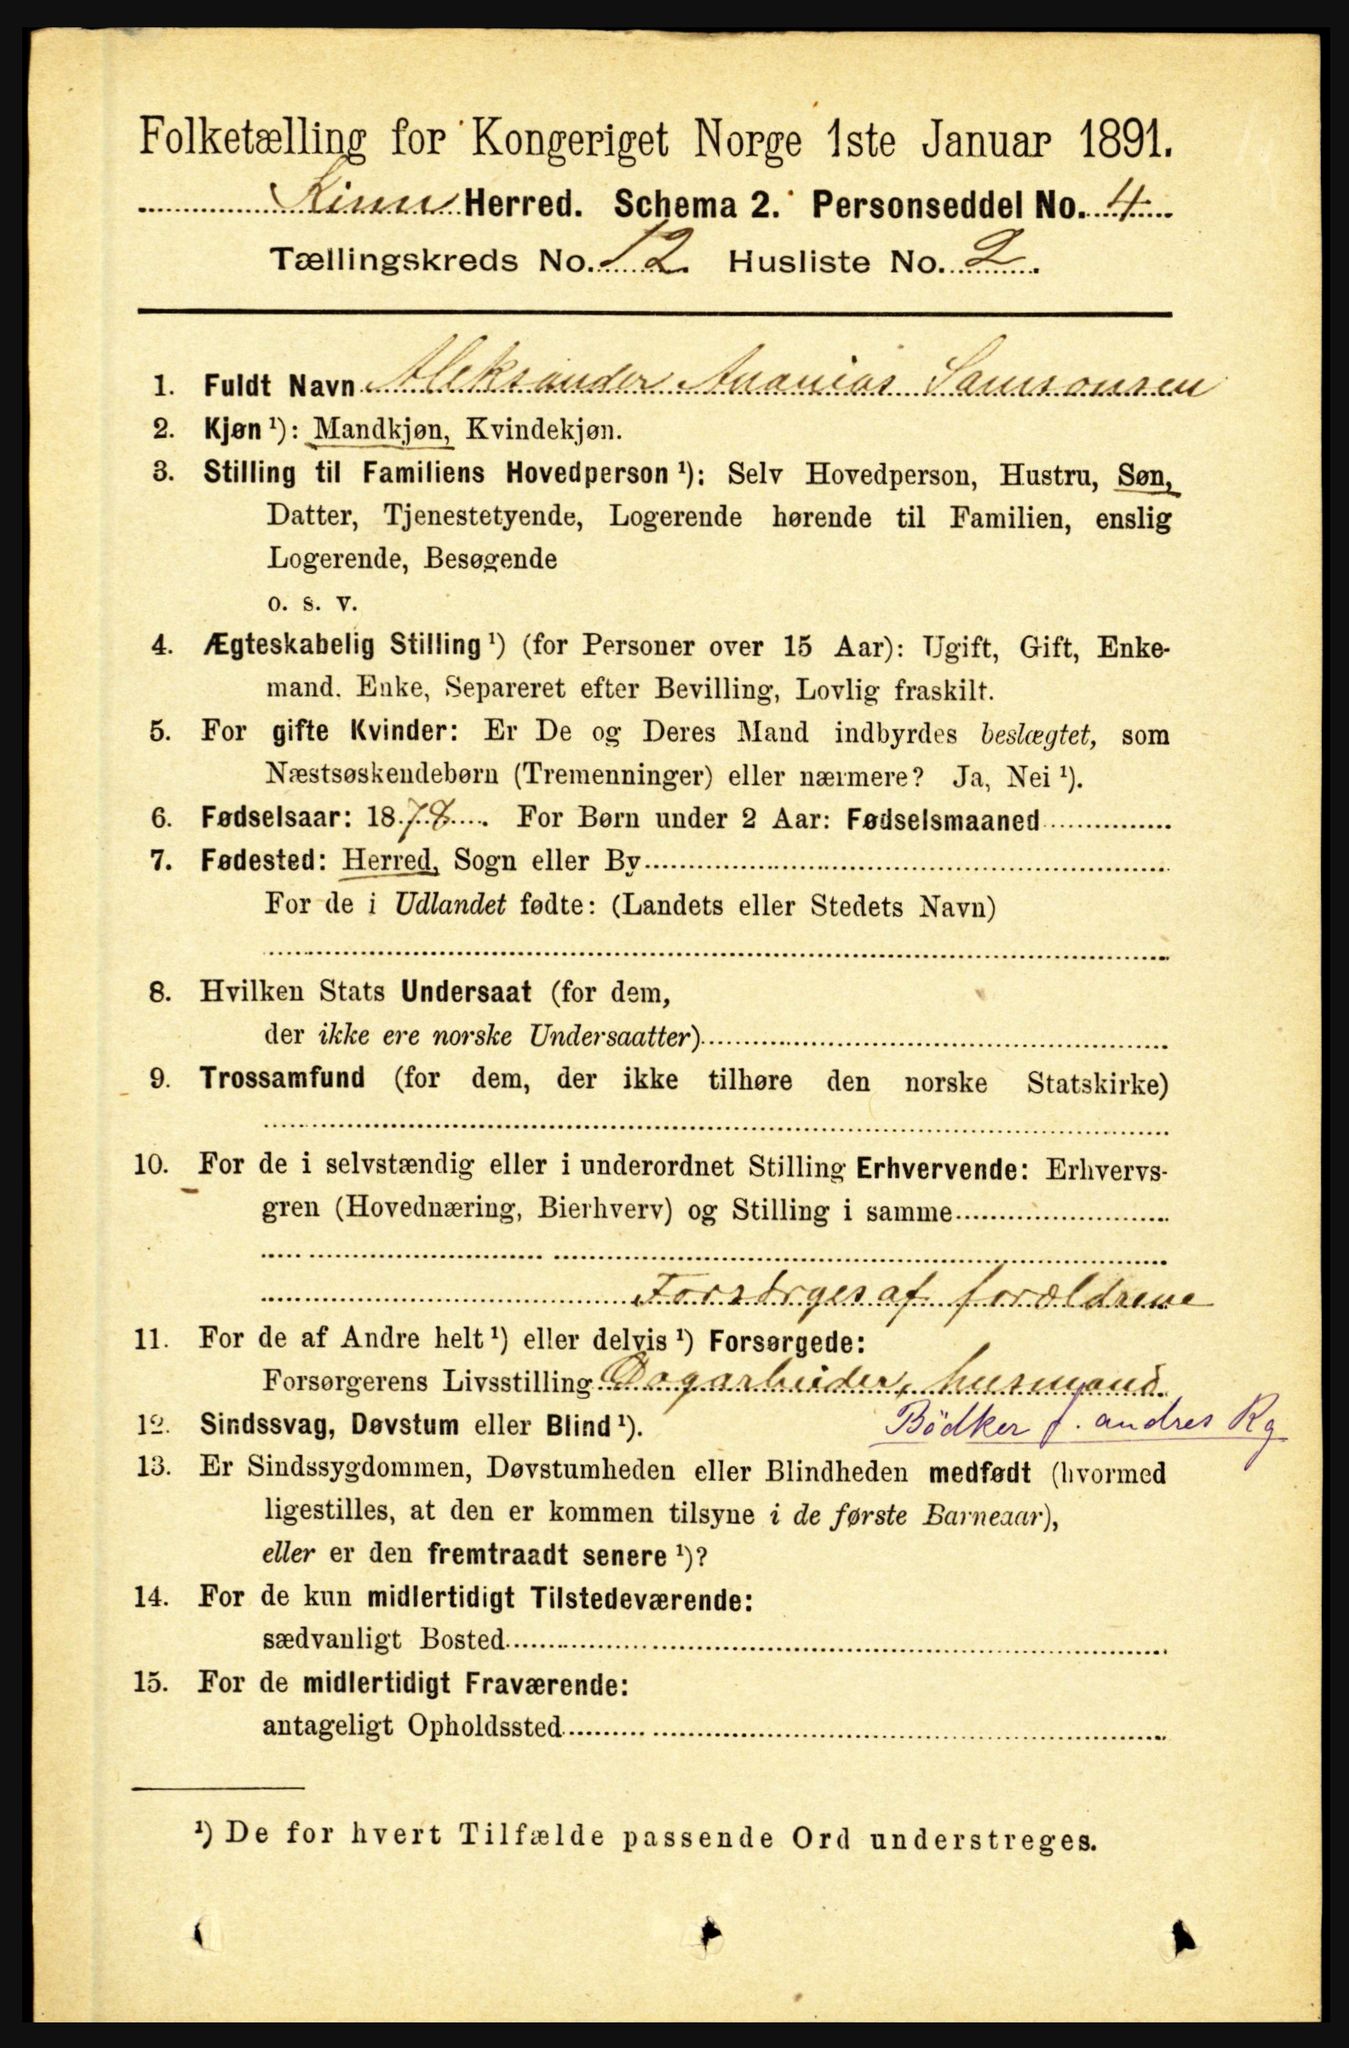 Folketælling for Kongeriget Norge 1ste Januar 1891.
Kinn Herred. Schema 2. Personseddel No. 4
Tællingskreds No. 12. Husliste No. 2.
1. Fuldt Navn Aleksander Ananias Samsonsen
2. Kjøn ¹): Mandkjøn, Kvindekjøn.
3. Stilling til Familiens Hovedperson ¹): Selv Hovedperson, Hustru, Søn,
Datter, Tjenestetyende, Logerende hørende til Familien, enslig
Logerende, Besøgende
o. s. v.
4. Ægteskabelig Stilling ¹) (for Personer over 15 Aar): Ugift, Gift, Enke-
mand. Enke, Separeret efter Bevilling, Lovlig fraskilt.
5. For gifte Kvinder: Er De og Deres Mand indbyrdes beslægtet, som
Næstsøskendebørn (Tremenninger) eller nærmere? Ja, Nei ¹).
6. Fødselsaar: 1878. For Børn under 2 Aar: Fødselsmaaned
7. Fødested: Herred, Sogn eller By
For de i Udlandet fødte: (Landets eller Stedets Navn)
8. Hvilken Stats Undersaat (for dem,
der ikke ere norske Undersaatter)
9. Trossamfund (for dem, der ikke tilhøre den norske Statskirke)
10. For de i selvstændig eller i underordnet Stilling Erhvervende: Erhvervs-
gren (Hovednæring, Bierhverv) og Stilling i samme
Forsørges af forældrene
11. For de af Andre helt ¹) eller delvis ¹) Forsørgede:
Forsørgerens Livsstilling Dagarbeider, husmand.
12. Sindssvag, Døvstum eller Blind ¹). Bödker f. andres Rg
13. Er Sindssygdommen, Døvstumheden eller Blindheden medfødt (hvormed
ligestilles, at den er kommen tilsyne i de første Barneaar),
eller er den fremtraadt senere ¹)?
14. For de kun midlertidigt Tilstedeværende:
sædvanligt Bosted
15. For de midlertidigt Fraværende:
antageligt Opholdssted
¹) De for hvert Tilfælde passende Ord understreges.